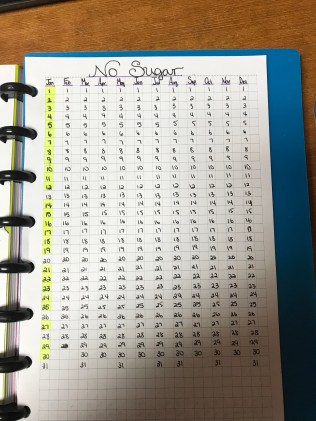 No Sugar
Jan Feb Mar Apr May Jun Jul Aug Sep Oct Nov Dec
1 1 1 1 1 1 1 1 1 1 1 1
2 2 2 2 2 2 2 2 2 2 2 2
3 3 3 3 3 3 3 3 3 3 3 3
4 4 4 4 4 4 4 4 4 4 4 4
5 5 5 5 5 5 5 5 5 5 5 5
6 6 6 6 6 6 6 6 6 6 6 6
7 7 7 7 7 7 7 7 7 7 7 7
8 8 8 8 8 8 8 8 8 8 8 8
9 9 9 9 9 9 9 9 9 9 9 9
10 10 10 10 10 10 10 10 10 10 10 10
11 11 11 11 11 11 11 11 11 11 11 11
12 12 12 12 12 12 12 12 12 12 12 12
13 13 13 13 13 13 13 13 13 13 13 13
14 14 14 14 14 14 14 14 14 14 14 14
15 15 15 15 15 15 15 15 15 15 15 15
16 16 16 16 16 16 16 16 16 16 16 16
17 17 17 17 17 17 17 17 17 17 17 17
18 18 18 18 18 18 18 18 18 18 18 18
19 19 19 19 19 19 19 19 19 19 19 19
20 20 20 20 20 20 20 20 20 20 20 20
21 21 21 21 21 21 21 21 21 21 21 21
22 22 22 22 22 22 22 22 22 22 22 22
23 23 23 23 23 23 23 23 23 23 23 23
24 24 24 24 24 24 24 24 24 24 24 24
25 25 25 25 25 25 25 25 25 25 25 25
26 26 26 26 26 26 26 26 26 26 26 26
27 27 27 27 27 27 27 27 27 27 27 27
28 28 28 28 28 28 28 28 28 28 28 28
29 29 29 29 29 29 29 29 29 29 29
30 30 30 30 30 30 30 30 30 30 30
31 31 31 31 31 31 31